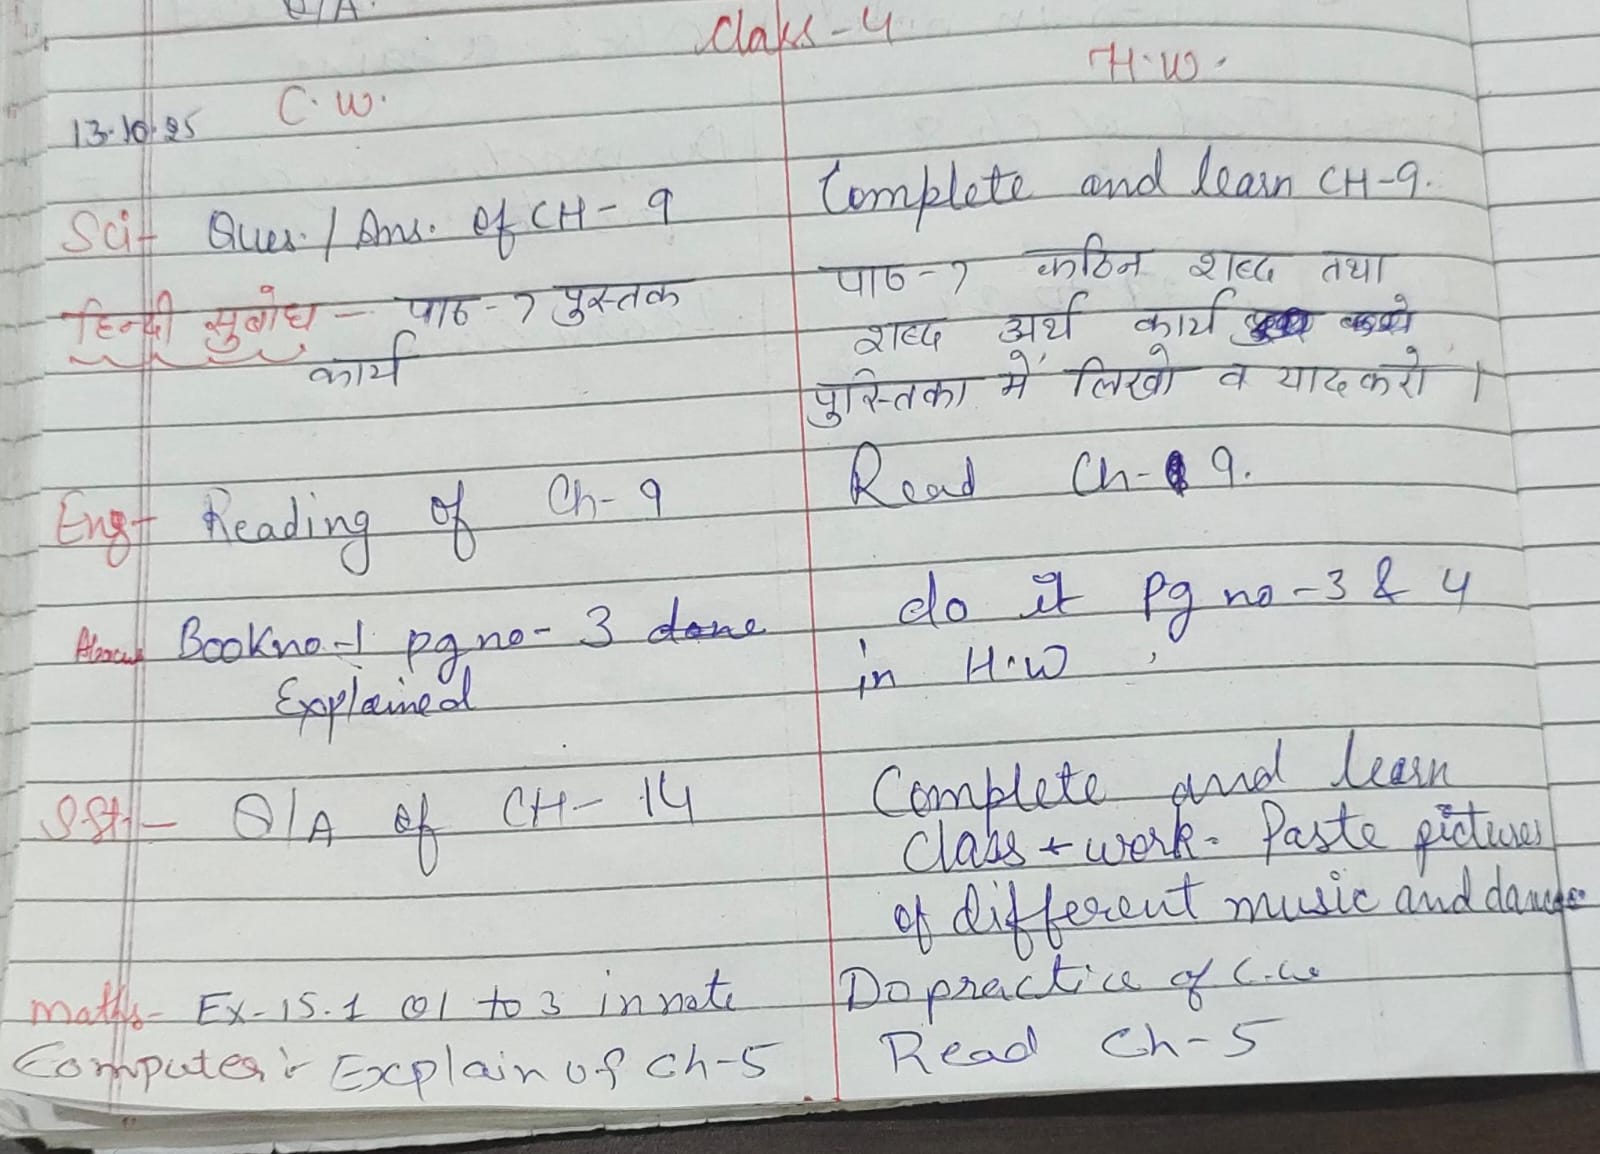 Q/A.
Class - 4
C.W.
H.W.
13.10.25
Sci - Ques. / Ans. of CH - 9
Complete and learn CH-9.
हिन्दी सुबोध - पाठ - 7 पुस्तक
कार्य
पाठ - 7 कठिन शब्द तथा
शब्द अर्थ कार्य
पुस्तिका में लिखो व याद करो ।
Eng - Reading of Ch - 9
Read Ch - 9.
Abacus Book no - 1 pg no - 3 done
Explained
do it Pg no - 3 & 4
in H.W
S.St - Q/A of CH - 14
Complete and learn
Class work. Paste pictures
of different music and dance.
Maths - Ex - 15.1 Q1 to 3 in note
Do practice of C.w
Computer :- Explain of Ch-5
Read Ch - 5